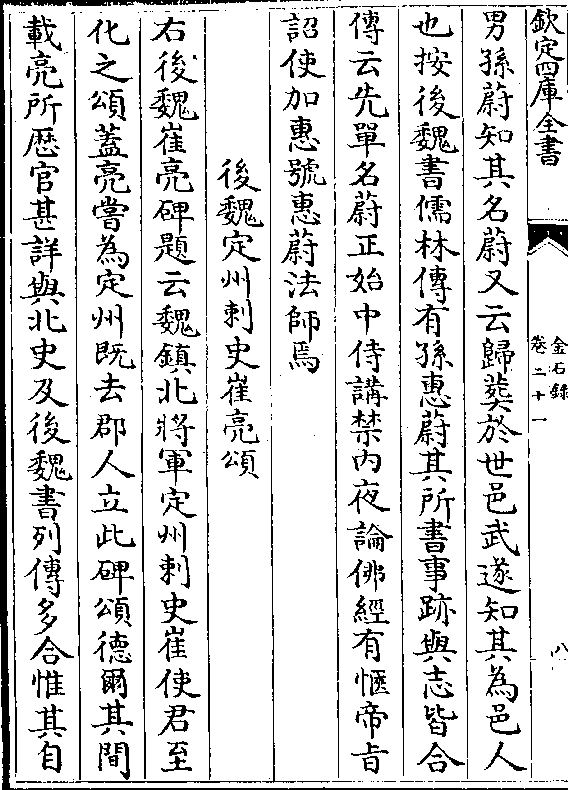 欽定四庫全書
金石錄
卷二十一
八
男孫蔚知其名蔚又云歸葬於世邑武遂知其為邑人
也按後魏書儒林傳有孫惠蔚其所書事跡與志皆合
傳云先單名蔚正始中侍講禁內夜論佛經有愜帝旨
詔使加惠號惠蔚法師焉
後魏定州刺史崔亮頌
右後魏崔亮碑題云魏鎮北將軍定州刺史崔使君至
化之頌蓋亮嘗為定州既去郡人立此碑頌德爾其間
載亮所歴官甚詳與北史及後魏書列傳多合惟其自